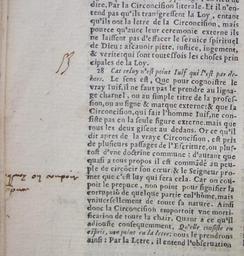 dire. Par la Circoncision literale. Et il n'en-
tend pas qu'ils transgressent la Loy, entant
qu'ils ont la letre de la Circoncision, mais
pource qu'avec leur ceremonie externe ils
ne laissent pas d'effacer le service spirituel
de Dieu: ascavoir pitié, justice, jugement,
& verité: qui sont toutesfois les choses prin-
cipales de la Loy.
28 Car celuy n'est point Juif qui l'est par de-
hors. Le sens est, Que pour cognoistre le
vray Juif, il ne faut pas le prendre au ligna-
ge charnel, ou au simple titre de la profes-
sion, ou au signe & marque externe: & que la
Circoncision, qui fait l'homme Juif, ne con-
siste pas en la seule figure externe, mais que
tous les deux gisent au dedans. Or ce qu'il
dit apres de la vraye Circoncision, est pris
de plusieurs passages de l'Escriture, ou plus-
tost d'une doctrine commune: d'autant que
quasi à tous propos il est commandé au peu-
ple de circoncir son cœur, & le Seigneur pro-
met que c'est luy qui fera cela. Car on cou-
poit le prepuce, non point pour signifier la
corruption de quelque partie seulement, mais
universellement de toute sa nature. Ainsi
donc la Circoncision emportoit une morti-
fication de toute la chair. Quant à ce qu'il
adjouste consequemment, Qu'elle consiste en
esprit, non point en la letre: nous le prendrons
ainsi: Par la Letre, il entend l'observation